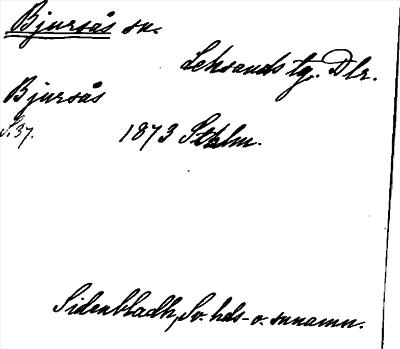 Bjursås sn.
Leksands tg. Dlr.
Bjursås
S. 37. 1873 Sthlm.
Sidenbladh, Sv. hds- o. snnamn.